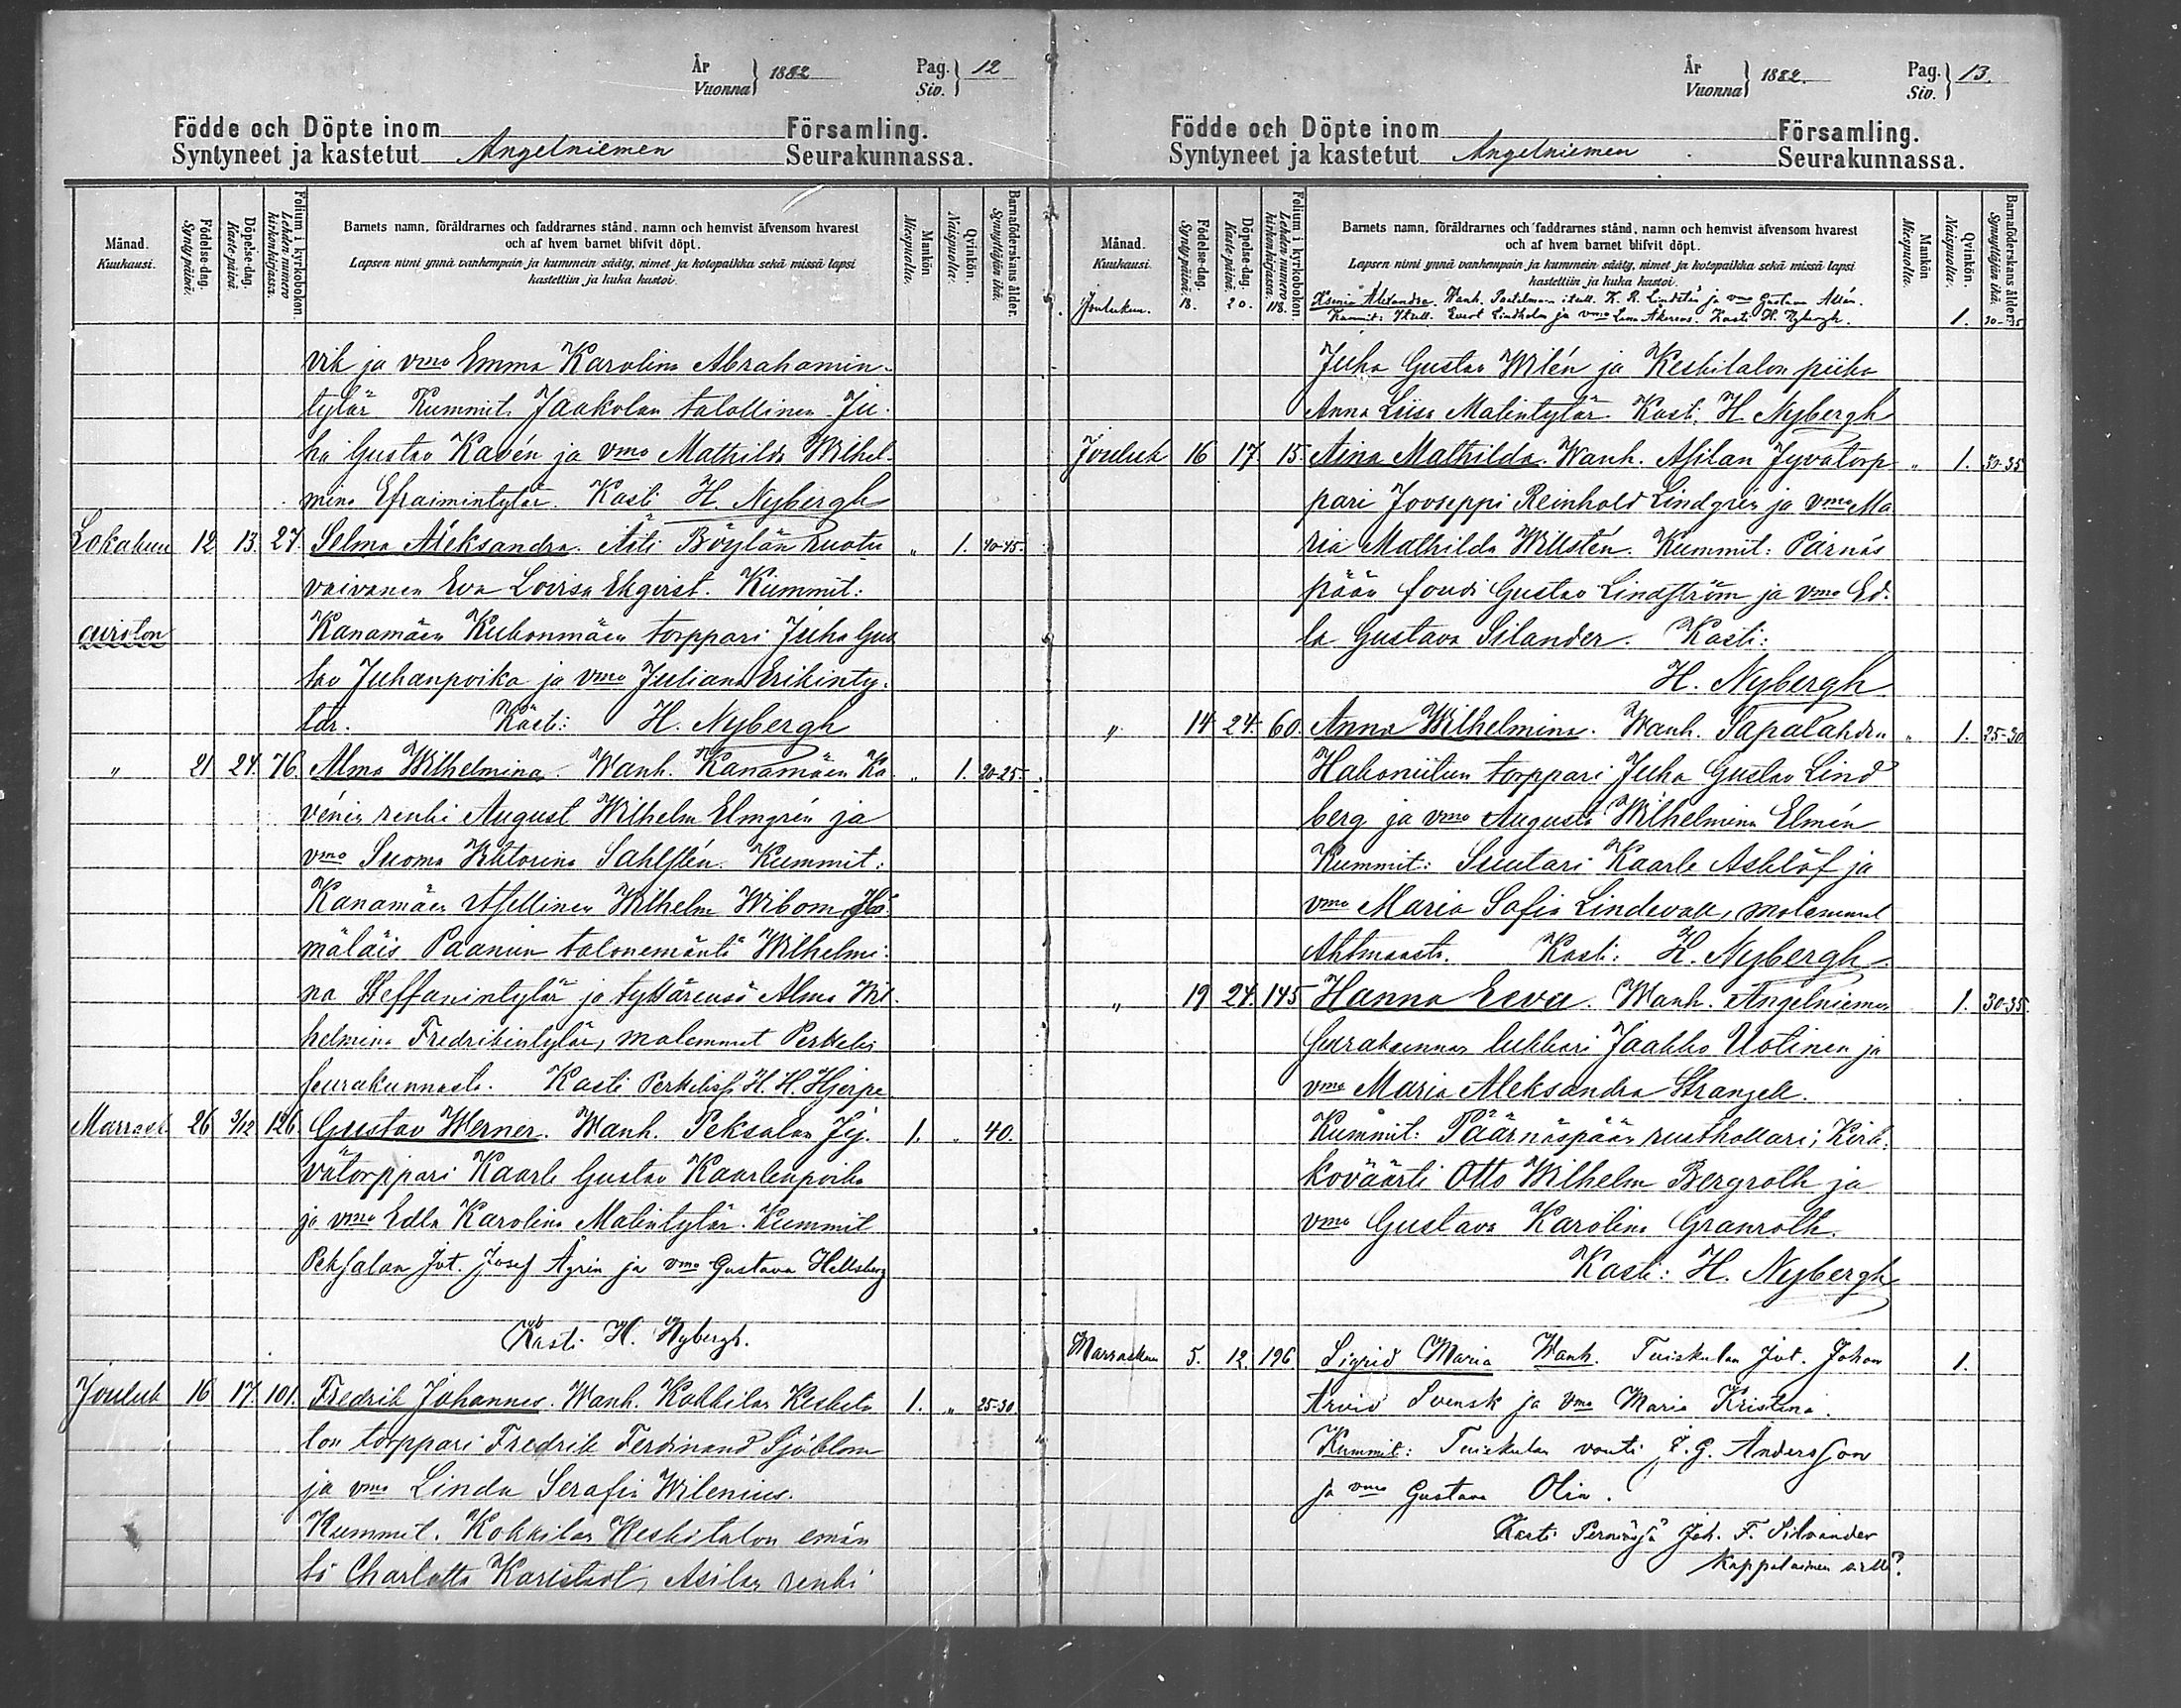 År
Vuonna} 1882
Pag.
Siv.} 12
Födde och Döpte inom Församling.
Syntyneet ja kastetut Angelniemen Seurakunnassa.
Månad.
Kuukausi.
Födelse-dag.
Synty-päivä.
Döpelse-dag.
Kaste-päivä.
Folium i kyrkoboken.
Lehden numero
kirkonkirjassa.
Barnets namn, föräldrarnes och faddrarnes stånd, namn och hemvist äfvensom hvarest
och af hvem barnet blifvit döpt.
Lapsen nimi ynnä vanhempain ja kummein sääty, nimet ja kotopaikka sekä missä lapsi
kastettiin ja kuka kastoi.
Mankön.
Miespuolta.
Qvinkön.
Naispuolta.
Barnaföderskans ålder.
Synnyttäjän ikä.
vik ja vmo Emma Karolina Abrahamin-
tytär Kummit. Jaakolan talollinen Ju-
ha Gustav Kavén ja vmo Mathilda Wilhel-
mina Efraimintytär. Kasti H. Nybergh
Lokakuu 12 13. 27. Selma Aleksandra. Äiti Böylän ruotu „ 1. 40-45.
vaivanen Eva Lovisa Ekqvist. Kummit:
Kanamäen Kukonmäen torppari Juha Gus
aviston
tav Juhanpoika ja vmo Juliana Erikinty-
tär. Kasti: H. Nybergh
„ 21 24. 76. Alma Wilhelmina. Wanh. Kanamäen Ka- „ 1. 20-25
vénin renki August Wilhelm Elmgrén ja
vmo Suoma Viktorina Sahlstén. Kummit:
Kanamäen itsellinen Wilhelm Wibom, Hä-
mäläis Paanun talonemäntä Wilhelmi-
na Steffanintytär ja tyttärensä Alma Wil-
helmina Fredrikintytär, molemmat Perttelin
seurakunnasta. Kasti Perttelissä H. H. Hjerpe
Marrask 26 3/12 126. Gustav Werner. Wanh. Peksalan Jy- 1. „ 40.
vätorppari Kaarle Gustav Kaarlenpoika
ja vmo Edla Karolina Matintytär. Kummit
Peksalan Jvt. Josef Ågrén ja vmo Gustava Hellsberg
Kasti H. Nybergh.
Jouluk 16 17. 101. Fredrik Johannes. Wanh. Kokkilan Keskita 1. „ 25-30.
lon torppari Fredrik Ferdinand Sjöblom
ja vmo Linda Serafia Wilenius.
Kummit. Kokkilan Keskitalon emän
tä Charlotta Karlstedt, Asilan renki
År
Vuonna} 1882.
Pag.
Siv.} 13.
Födde och Döpte inom Församling.
Syntyneet ja kastetut Angelniemen Seurakunnassa.
Månad.
Kuukausi.
Födelse-dag.
Synty-päivä.
Döpelse-dag.
Kaste-päivä.
Folium i kyrkoboken.
Lehden numero
kirkonkirjassa.
Barnets namn, föräldrarnes och faddrarnes stånd, namn och hemvist äfvensom hvarest
och af hvem barnet blifvit döpt.
Lapsen nimi ynnä vanhempain ja kummein sääty, nimet ja kotopaikka sekä missä lapsi
kastettiin ja kuka kastoi.
Mankön
Miespuolta.
Qvinkön.
Naispuolta.
Barnaföderskans ålder.
Synnyttäjän ikä.
Joulukun. 18. 20. 118. Ksenia Alexandra. Wanh. itsell. K. R. Lindstén ja vmo Gustava Allén.
Kummit: Itsell. Evert Lindholm ja vmo Lena Kasti H. Nybergh. 1. 30-35
Juha Gustav Wilén ja Keskitalon piika
Anna Liisa Matintytär. Kasti, H. Nybergh
Jouluk 16 17. 15. Aina Mathilda. Wanh. Asilan Jyvätorp „ 1. 30-35
pari Jooseppi Reinhold Lindgrén ja vmo Ma
ria Mathilda Willstén. Kummit: Pärnäs
pään foudi Gustav Lindström ja vmo Ed-
la Gustava Silander. Kasti:
H. Nybergh
„ 14 24. 60. Anna Wilhelmina. Wanh. Sapalahden „ 1. 25-30
Hakoniitun torppari Juha Gustav Lind
berg ja vmo Augusta Wilhelmina Elmén
Kummit: Suutari Kaarle Asklöf ja
vmo Maria Sofia Lindevall, molemmat
Ahtmaasta. Kasti: H. Nybergh
„ 19 24. 145 Hanna Eeva. Wanh. Angelniemen 1. 30-35.
seurakunnan lukkari Jaakko Uotinen ja
vmo Maria Aleksandra Strangell.
Kummit: Päärnäspään rusthollari, Kirk-
koväärti Otto Wilhelm Bergroth ja
vmo Gustava Karolina Granroth.
Kasti: H. Nybergh
Marraskuu 5. 12. 196 Sigrid Maria Wanh. Tuiskulan Jvt. Johan 1.
Arvid Svensk ja vmo Maria Kristina.
Kummit: Tuiskulan vouti F. G. Andersson
ja vmo Gustava Olin.
Kasti Perniössä Joh. F. Silvander
Kappalainen